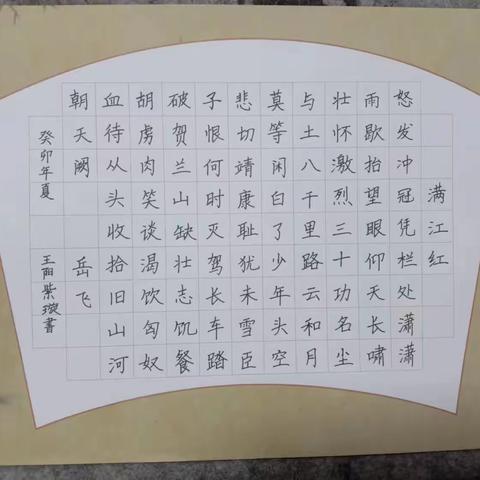 满江红
怒发冲冠凭栏处潇潇
雨歇抬望眼仰天长啸
壮怀激烈三十功名尘
与土八千里路云和月
莫等闲白了少年头空
悲切靖康耻犹未雪臣
子恨何时灭驾长车踏
破贺兰山缺壮志饥餐
胡虏肉笑谈渴饮匈奴
血待从头收拾旧山河
朝天阙 岳飞
癸卯年夏 王紫璇書